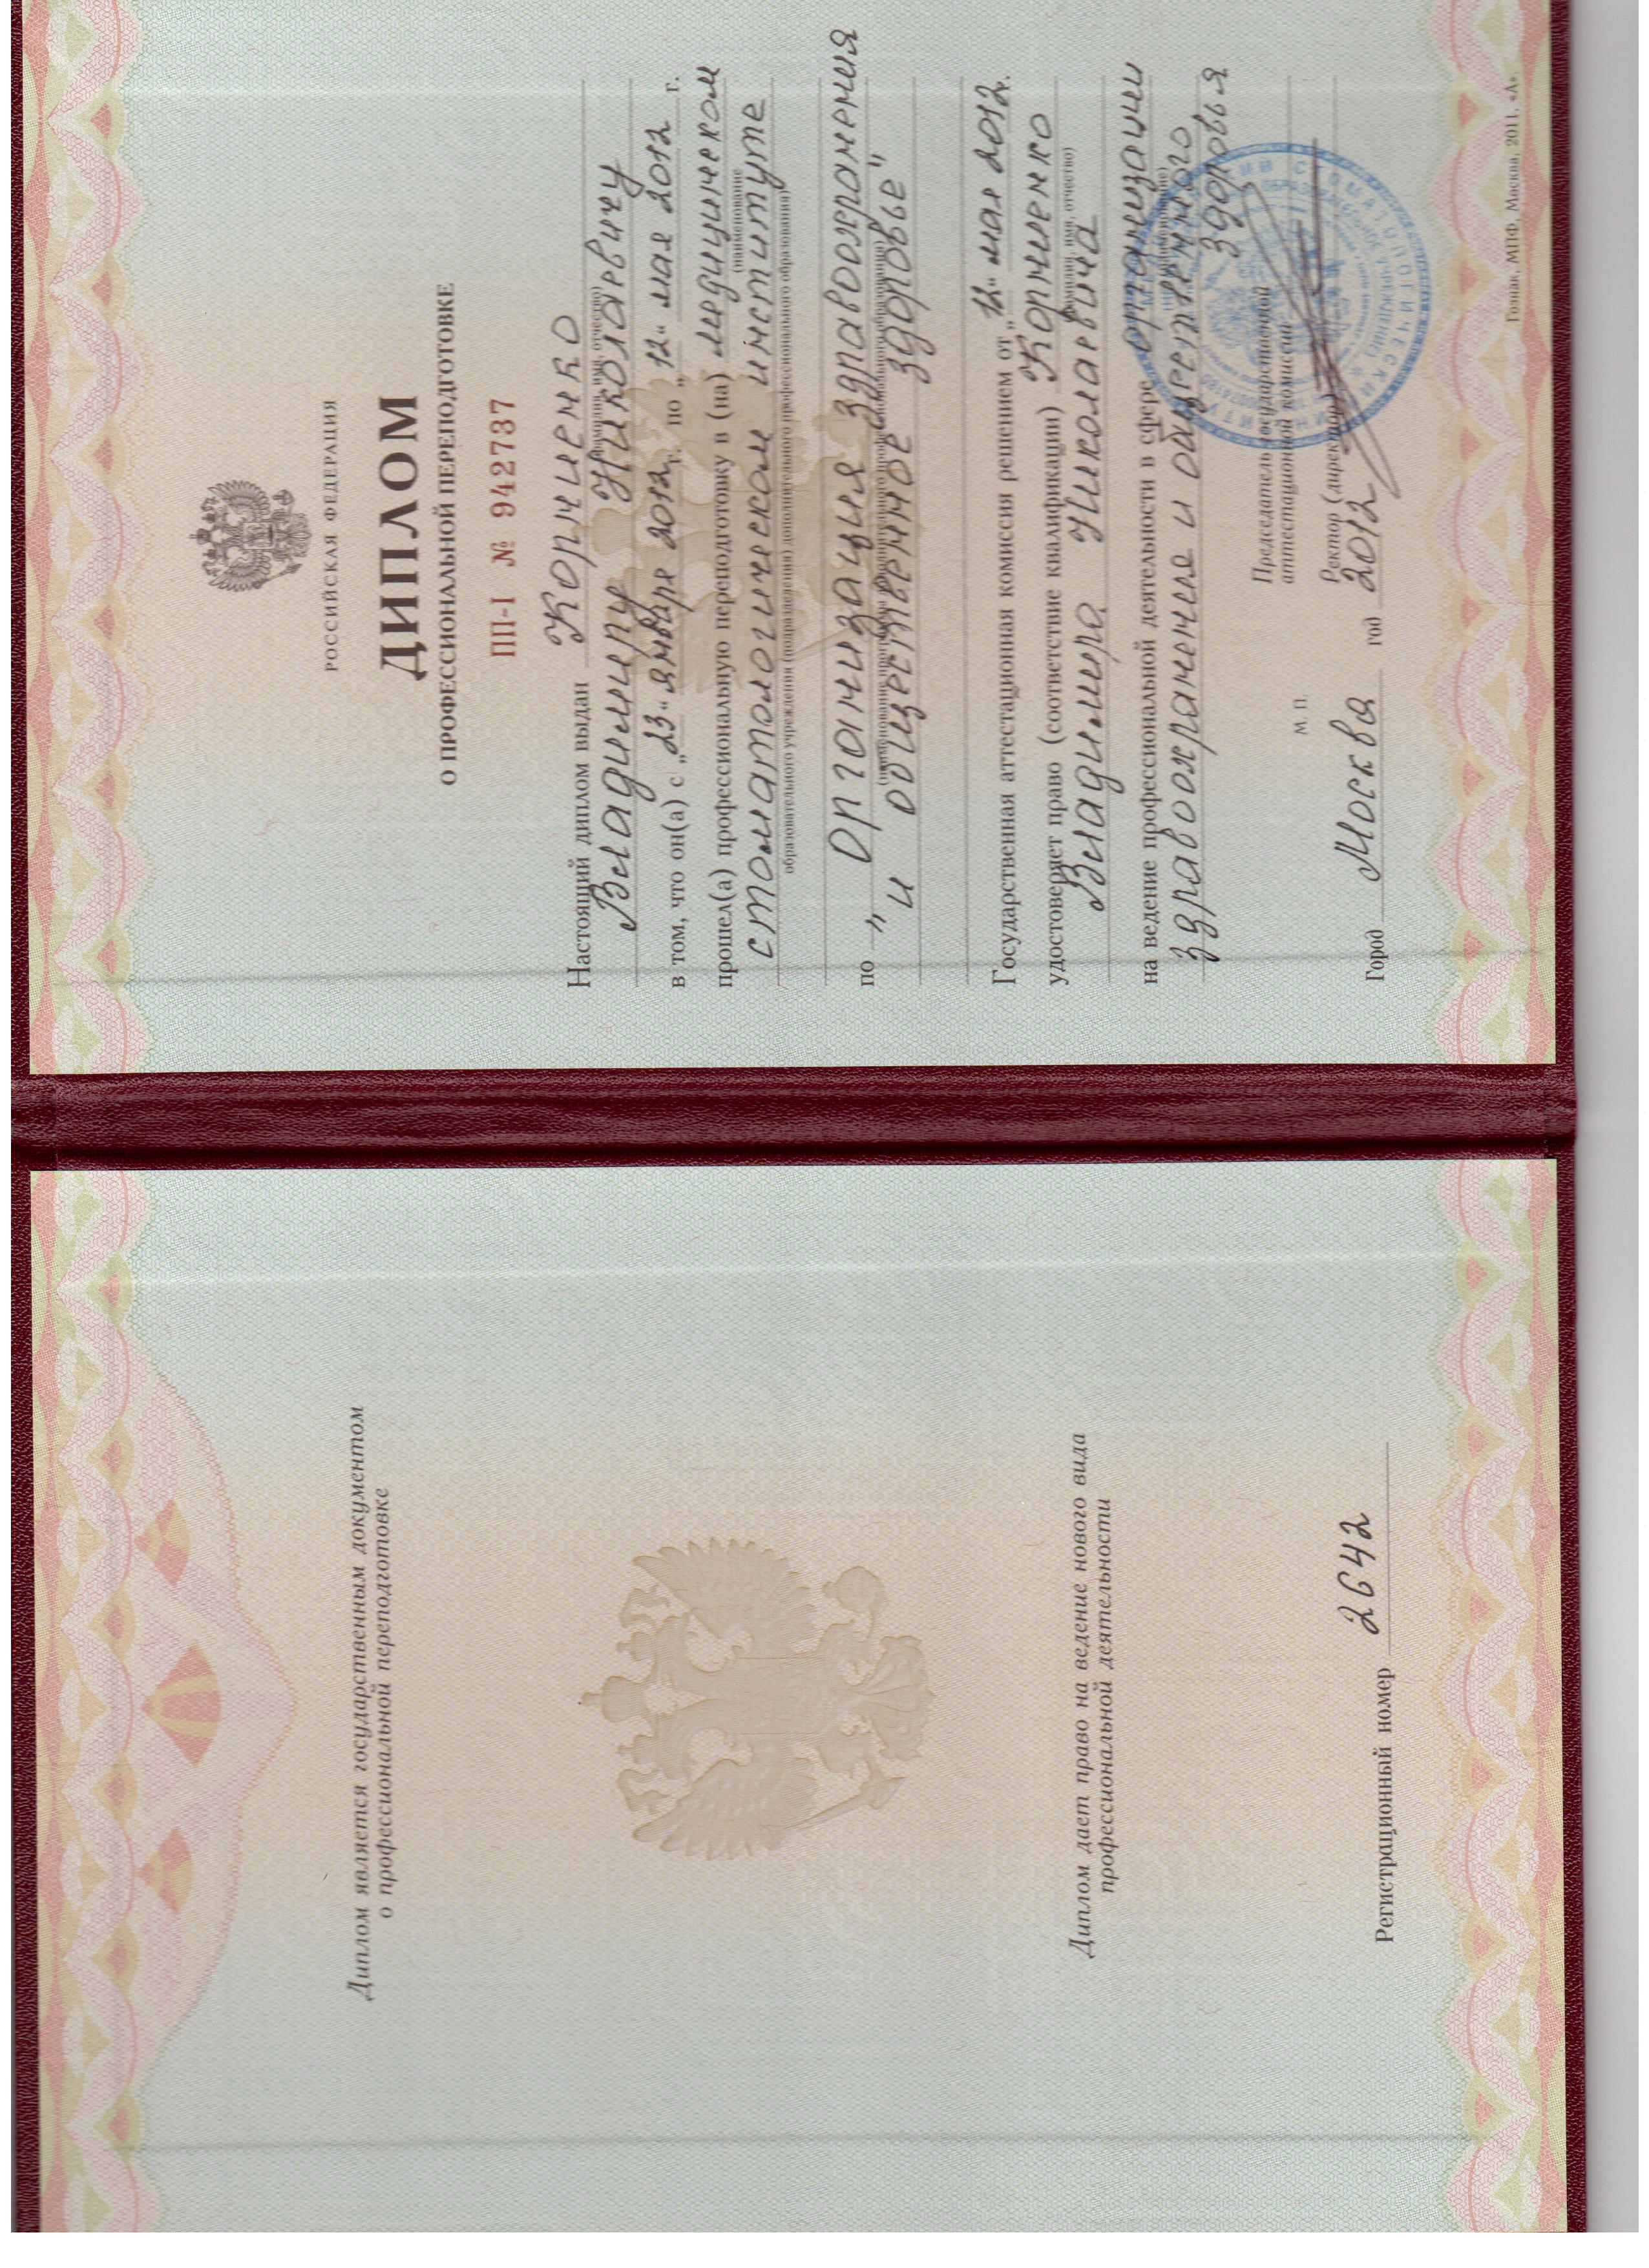 Диплом является государственным документом
о профессиональной переподготовке
Диплом дает право на ведение нового вида
профессиональной деятельности
Регистрационный номер 2642
РОССИЙСКАЯ ФЕДЕРАЦИЯ
ДИПЛОМ
О ПРОФЕССИОНАЛЬНОЙ ПЕРЕПОДГОТОВКЕ
ПП-I № 942737
Настоящий диплом выдан Корниенко
(фамилия, имя, отчество)
Владимиру Николаевичу
в том, что он(а) с „23" января 2012 г. по „12" мая 2012 г.
прошел(а) профессиональную переподготовку в (на) медицинском
(наименование
стоматологическом институте
образовательного учреждения (подразделения) дополнительного профессионального образования)
по „ Организация здравоохранения
(наименование программы дополнительного профессионального образования)
и общественное здоровье"
Государственная аттестационная комиссия решением от „12" мая 2012.
удостоверяет право (соответствие квалификации) Корниенко
(фамилия, имя, отчество)
Владимира Николаевича
на ведение профессиональной деятельности в сфере организации
(наименование)
здравоохранения и общественного
здоровья
Председатель государственной
аттестационной комиссии
М. П.
Ректор (директор)
Город Москва год 2012
Гознак, МПФ, Москва, 2011, «А».